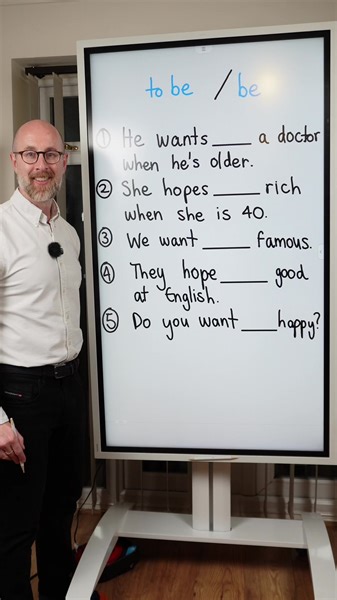 to be / be
① He wants ____ a doctor
when he's older.
② She hopes ____ rich
when she is 40.
③ We want ____ famous.
④ They hope ____ good
at English.
⑤ Do you want ____ happy?